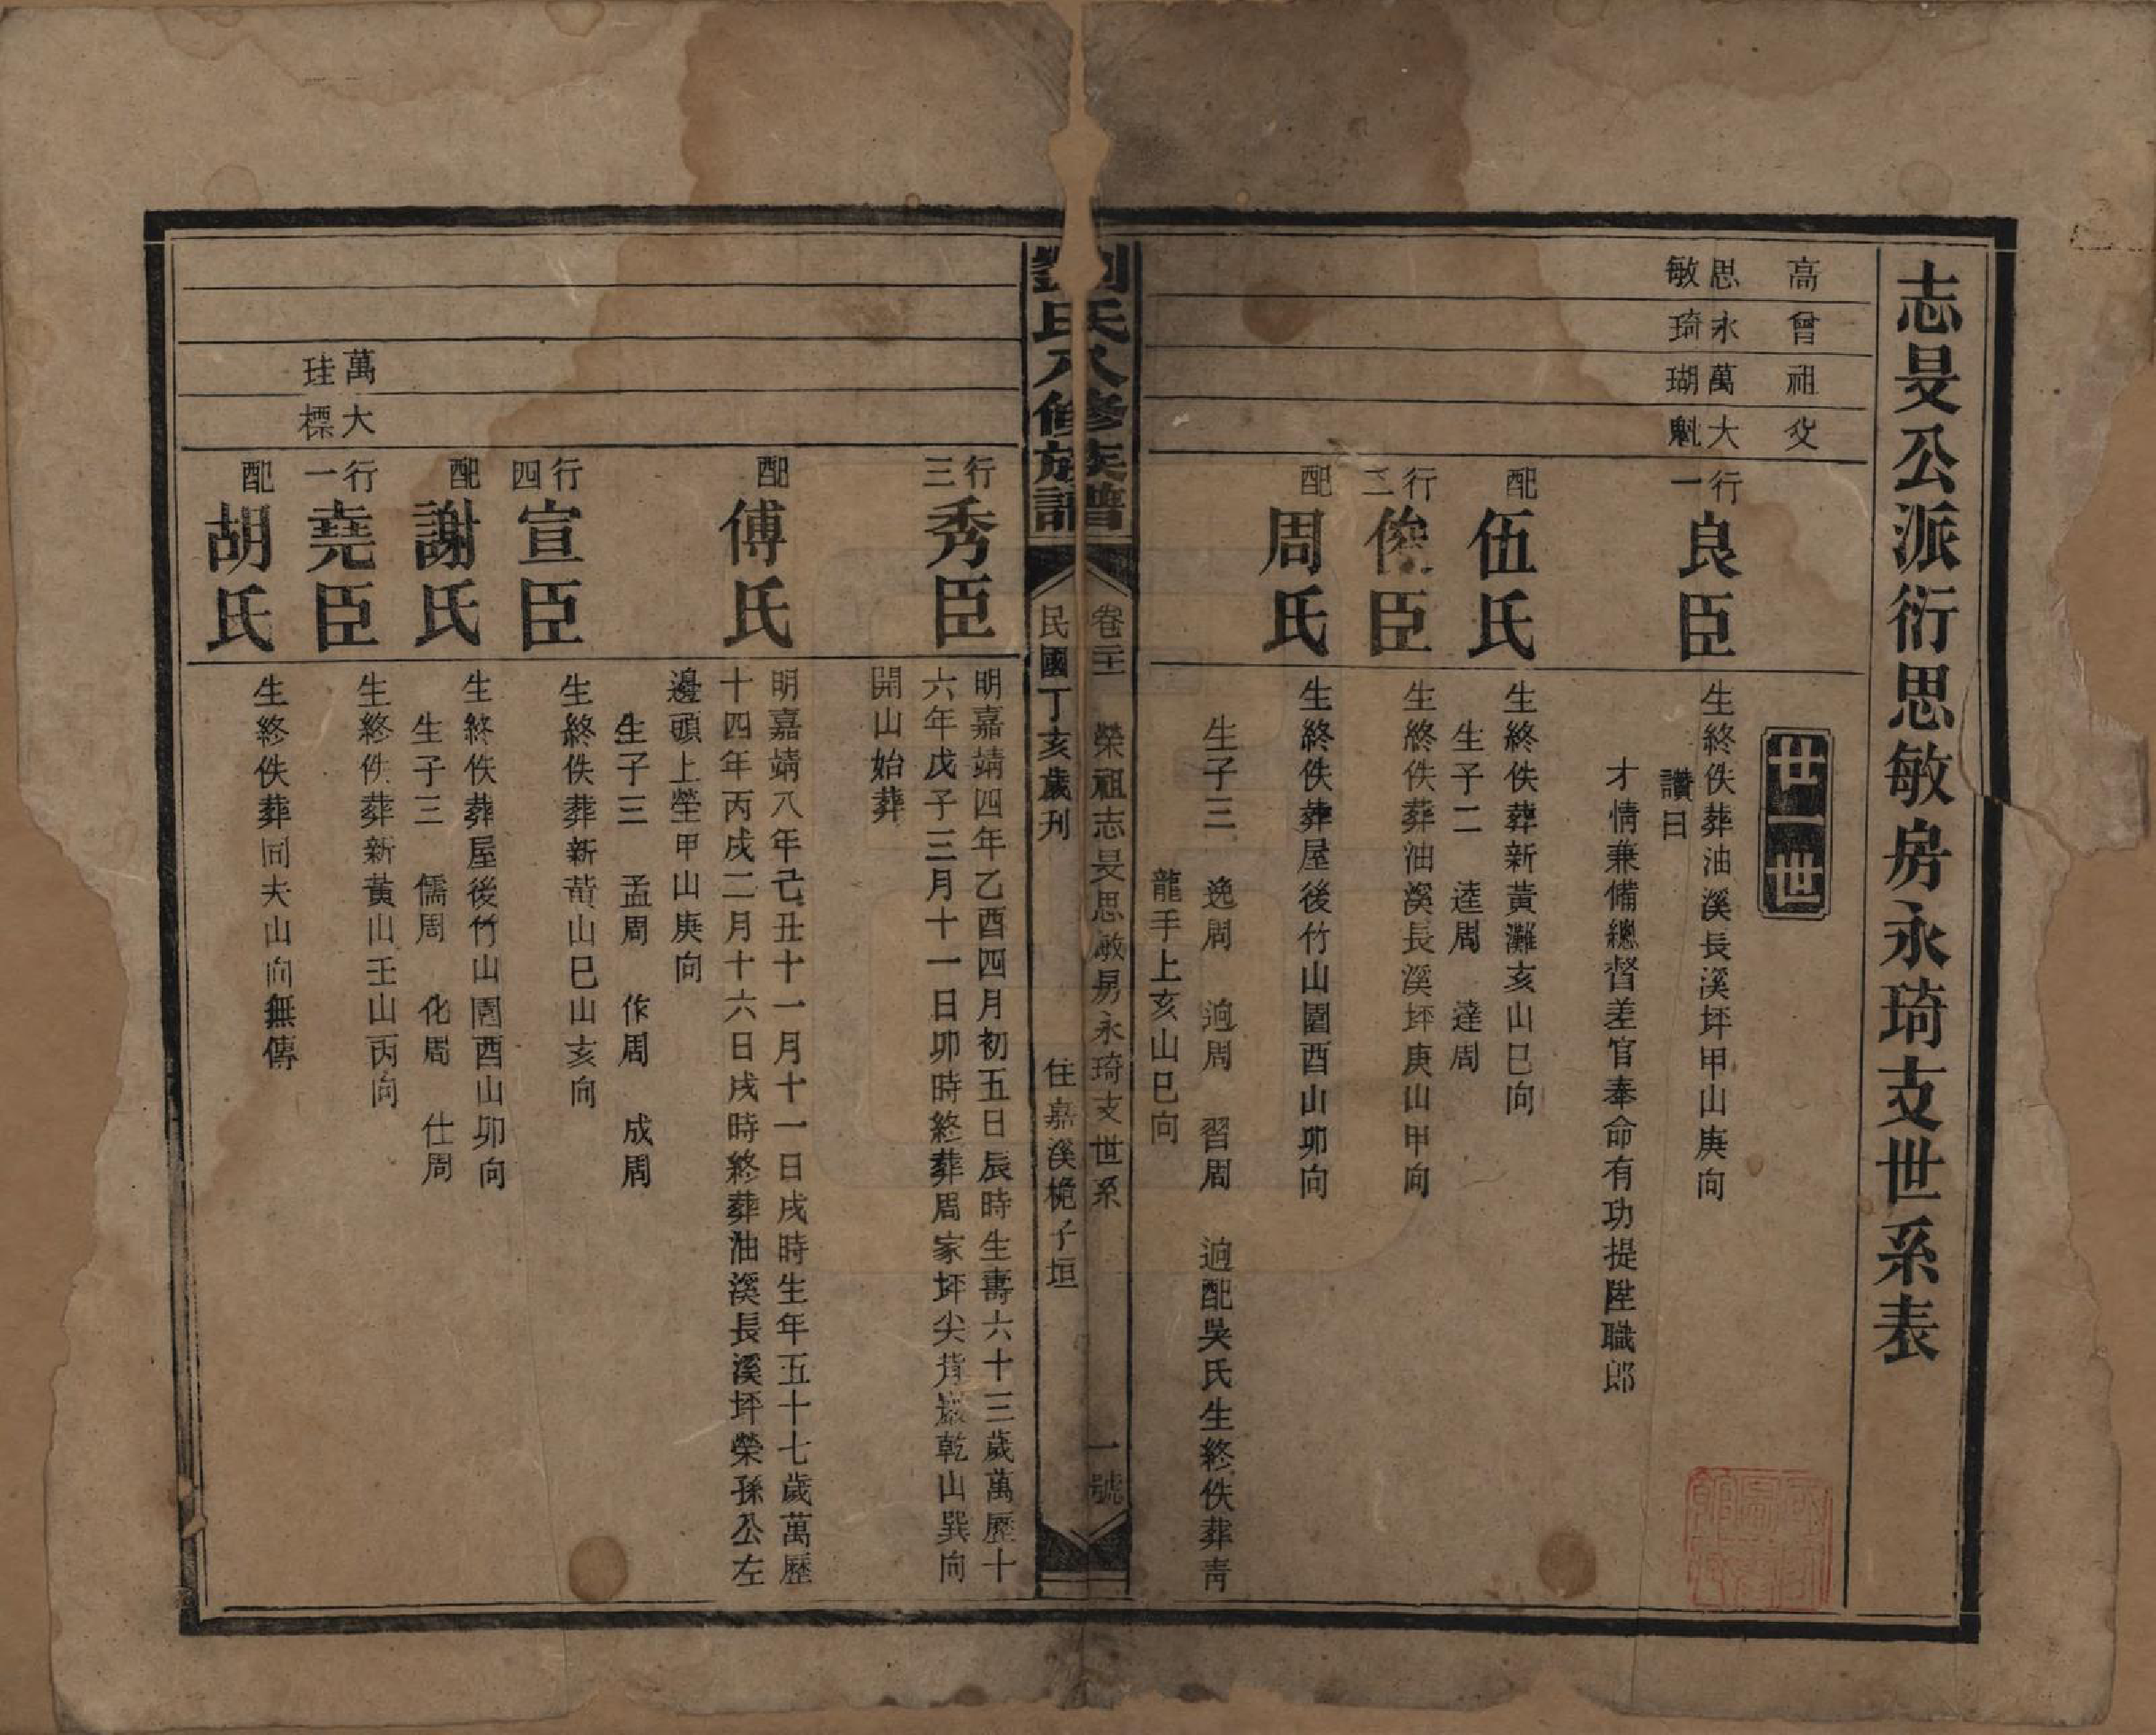 志旻公派衍思敏房永琦支世系表
高 曾 祖 父
思敏 永琦 萬瑚 大魁
廿一世
行一 良臣
生終佚葬油溪長溪坪甲山庚向
讚曰
才情兼備總督差官奉命有功提陞職郎
配 伍氏
生終佚葬新黃灘亥山巳向
生子二 逵周 達周
行二 俊臣
生終佚葬油溪長溪坪庚山甲向
配 周氏
生終佚葬屋後竹山園酉山卯向
生子三 逸周 迥周 習周 迥配吳氏生終佚葬青
龍手上亥山巳向
劉氏八修族譜
卷二十一 榮祖志旻思敏房永琦支世系 一號
民國丁亥歲刊 住嘉溪桅子垣
行三 秀臣
明嘉靖四年乙酉四月初五日辰時生壽六十三歲萬歷十
六年戊子三月十一日卯時終葬周家坪尖背巖乾山巽向
開山始葬
配 傅氏
明嘉靖八年己丑十一月十一日戌時生年五十七歲萬歷
十四年丙戌二月十六日戌時終葬油溪長溪坪榮孫公左
邊頭上塋甲山庚向
生子三 孟周 作周 成周
行四 宣臣
生終佚葬新黃山巳山亥向
配 謝氏
生終佚葬屋後竹山園酉山卯向
生子三 儒周 化周 仕周
萬珪 大標
行一 堯臣
生終佚葬新黃山壬山丙向
配 胡氏
生終佚葬同夫山向無傳